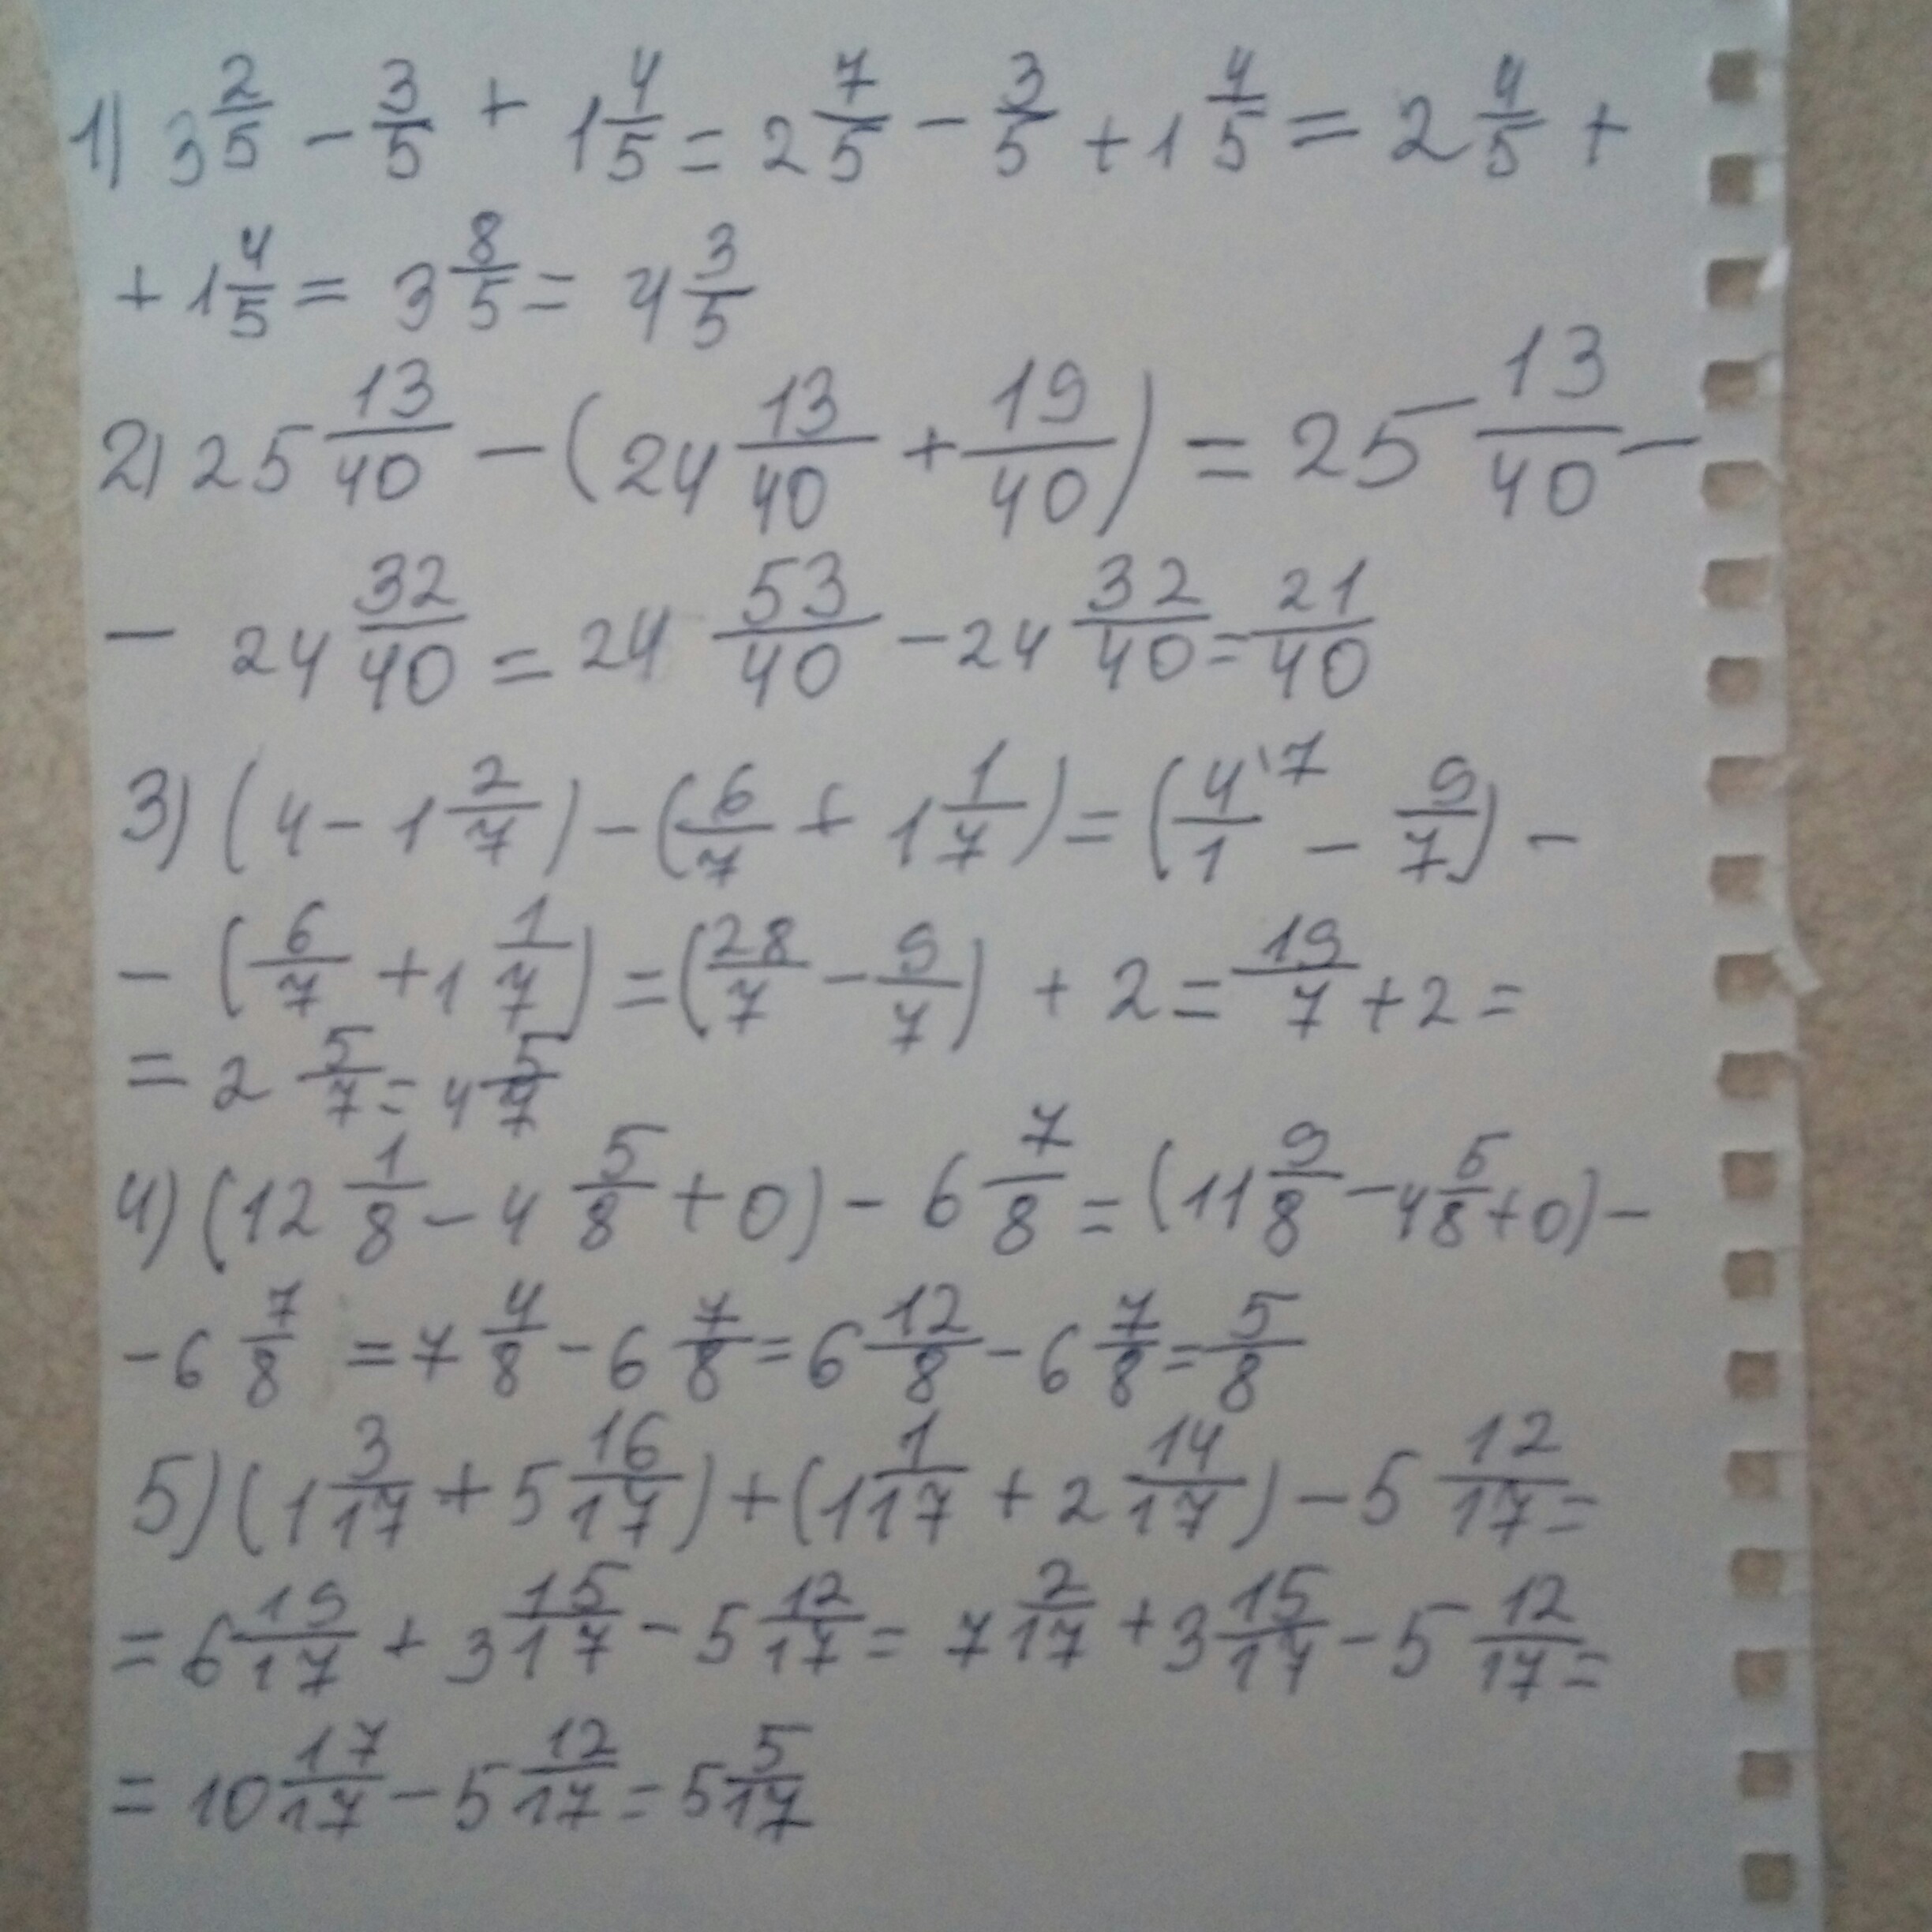 1) 3 2/5 - 3/5 + 1 4/5 = 2 7/5 - 3/5 + 1 4/5 = 2 4/5 +
+ 1 4/5 = 3 8/5 = 4 3/5
2) 25 13/40 - (24 13/40 + 19/40) = 25 13/40 -
- 24 32/40 = 24 53/40 - 24 32/40 = 21/40
3) (4 - 1 2/7) - (6/7 + 1 1/7) = (4\7/1 - 9/7) -
- (6/7 + 1 1/7) = (28/7 - 9/7) + 2 = 19/7 + 2 =
= 2 5/7 = 4 5/7
4) (12 1/8 - 4 5/8 + 0) - 6 7/8 = (11 9/8 - 4 5/8 + 0) -
- 6 7/8 = 7 4/8 - 6 7/8 = 6 12/8 - 6 7/8 = 5/8
5) (1 3/17 + 5 16/17) + (1 1/17 + 2 14/17) - 5 12/17 =
= 6 19/17 + 3 15/17 - 5 12/17 = 7 2/17 + 3 15/17 - 5 12/17 =
= 10 17/17 - 5 12/17 = 5 5/17